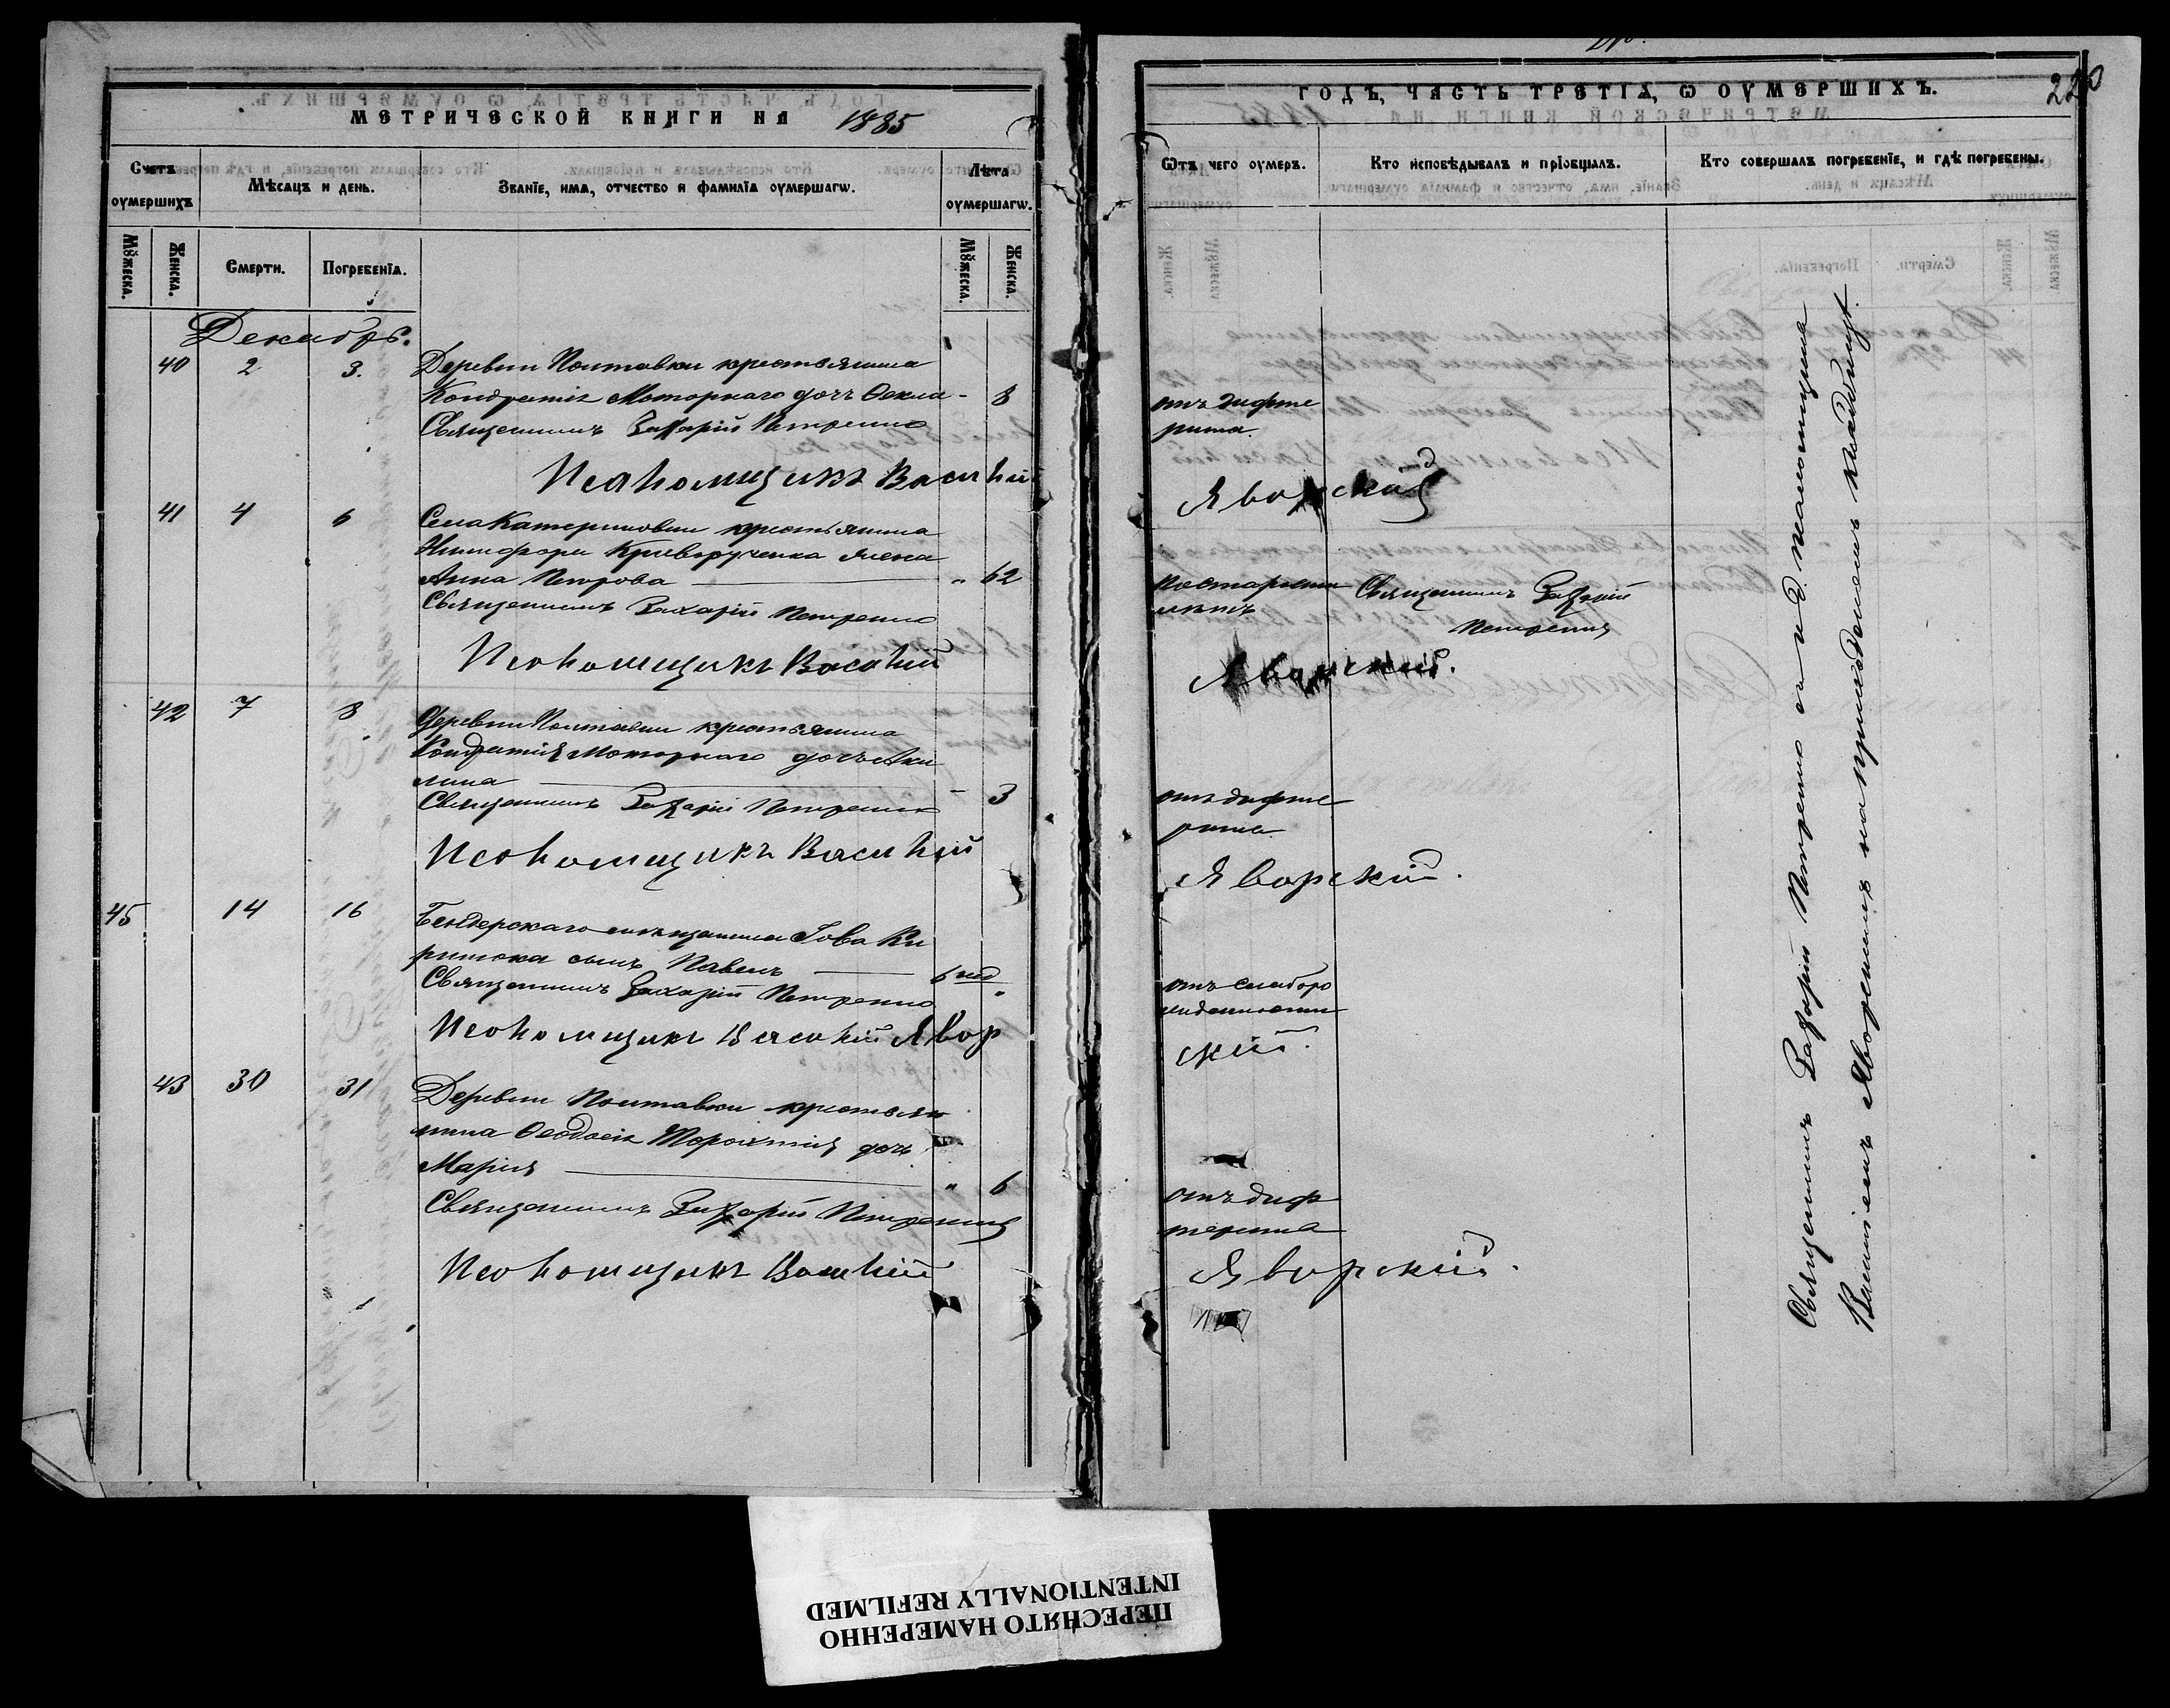 МЕТРИЧЕСКОЙ КНИГИ НА 1885
Счетъ оумершихъ
Мѣсяцъ и день.
Званїе, имя, отчество и фамилїа оумершагѡ.
Лѣта оумершагѡ.
Мꙋжеска.
Женска.
Смерти.
Погребенїа.
Мꙋжеска.
Женска.
Декабрь.
40 2 3. Деревни Полтавки крестьянина
Кондратія Моторнаго дочь Ѳекла - 8
Священникъ Захарій Петренко
Псаломщикъ Василій
41 4 6 Села Катериновки крестьянина
Никифора Криворученка жена
Анна Петрова — „ 62
Священникъ Захарій Петренко
Псаломщикъ Василій
42 7 8 Деревни Полтавки крестьянина
Кондратія Моторнаго дочь Аки
лина — - 3
Священникъ Захарій Петренко
Псаломщикъ Василій
45 14 16 Бендерскаго мѣщанина Іова Ки
сынъ Павелъ — 6 нед „
Священникъ Захарій Петренко
Псаломщикъ Василій Явор
43 30 31 Деревни Полтавки крестьян
нина Ѳеодосія дочь
Марія — „ 6
Священникъ Захарій Петренко
Псаломщикъ Василій
220
ГОДЪ, ЧАСТЬ ТРЕТІА, Ѡ ОУМЕРШИХЪ.
Ѿтъ чего оумеръ.
Кто исповѣдывалъ и прїобщалъ.
Кто совершалъ погребенїе, и гдѣ погребены.
отъ дифте
рита
Яворскій
по старости
лѣтъ
Священникъ Захарій
Петренко
Яворскій.
отъ дифте
рита
Яворскій.
отъ слаборо
жденности
скій.
отъ диф
терита
Яворскій.
Священникъ Захарій Петренко съ и. д. псаломщика
Василіемъ Яворскимъ на приходскомъ кладбищѣ.
ПЕРЕСНЯТО НАМЕРЕННО
INTENTIONALLY REFILMED